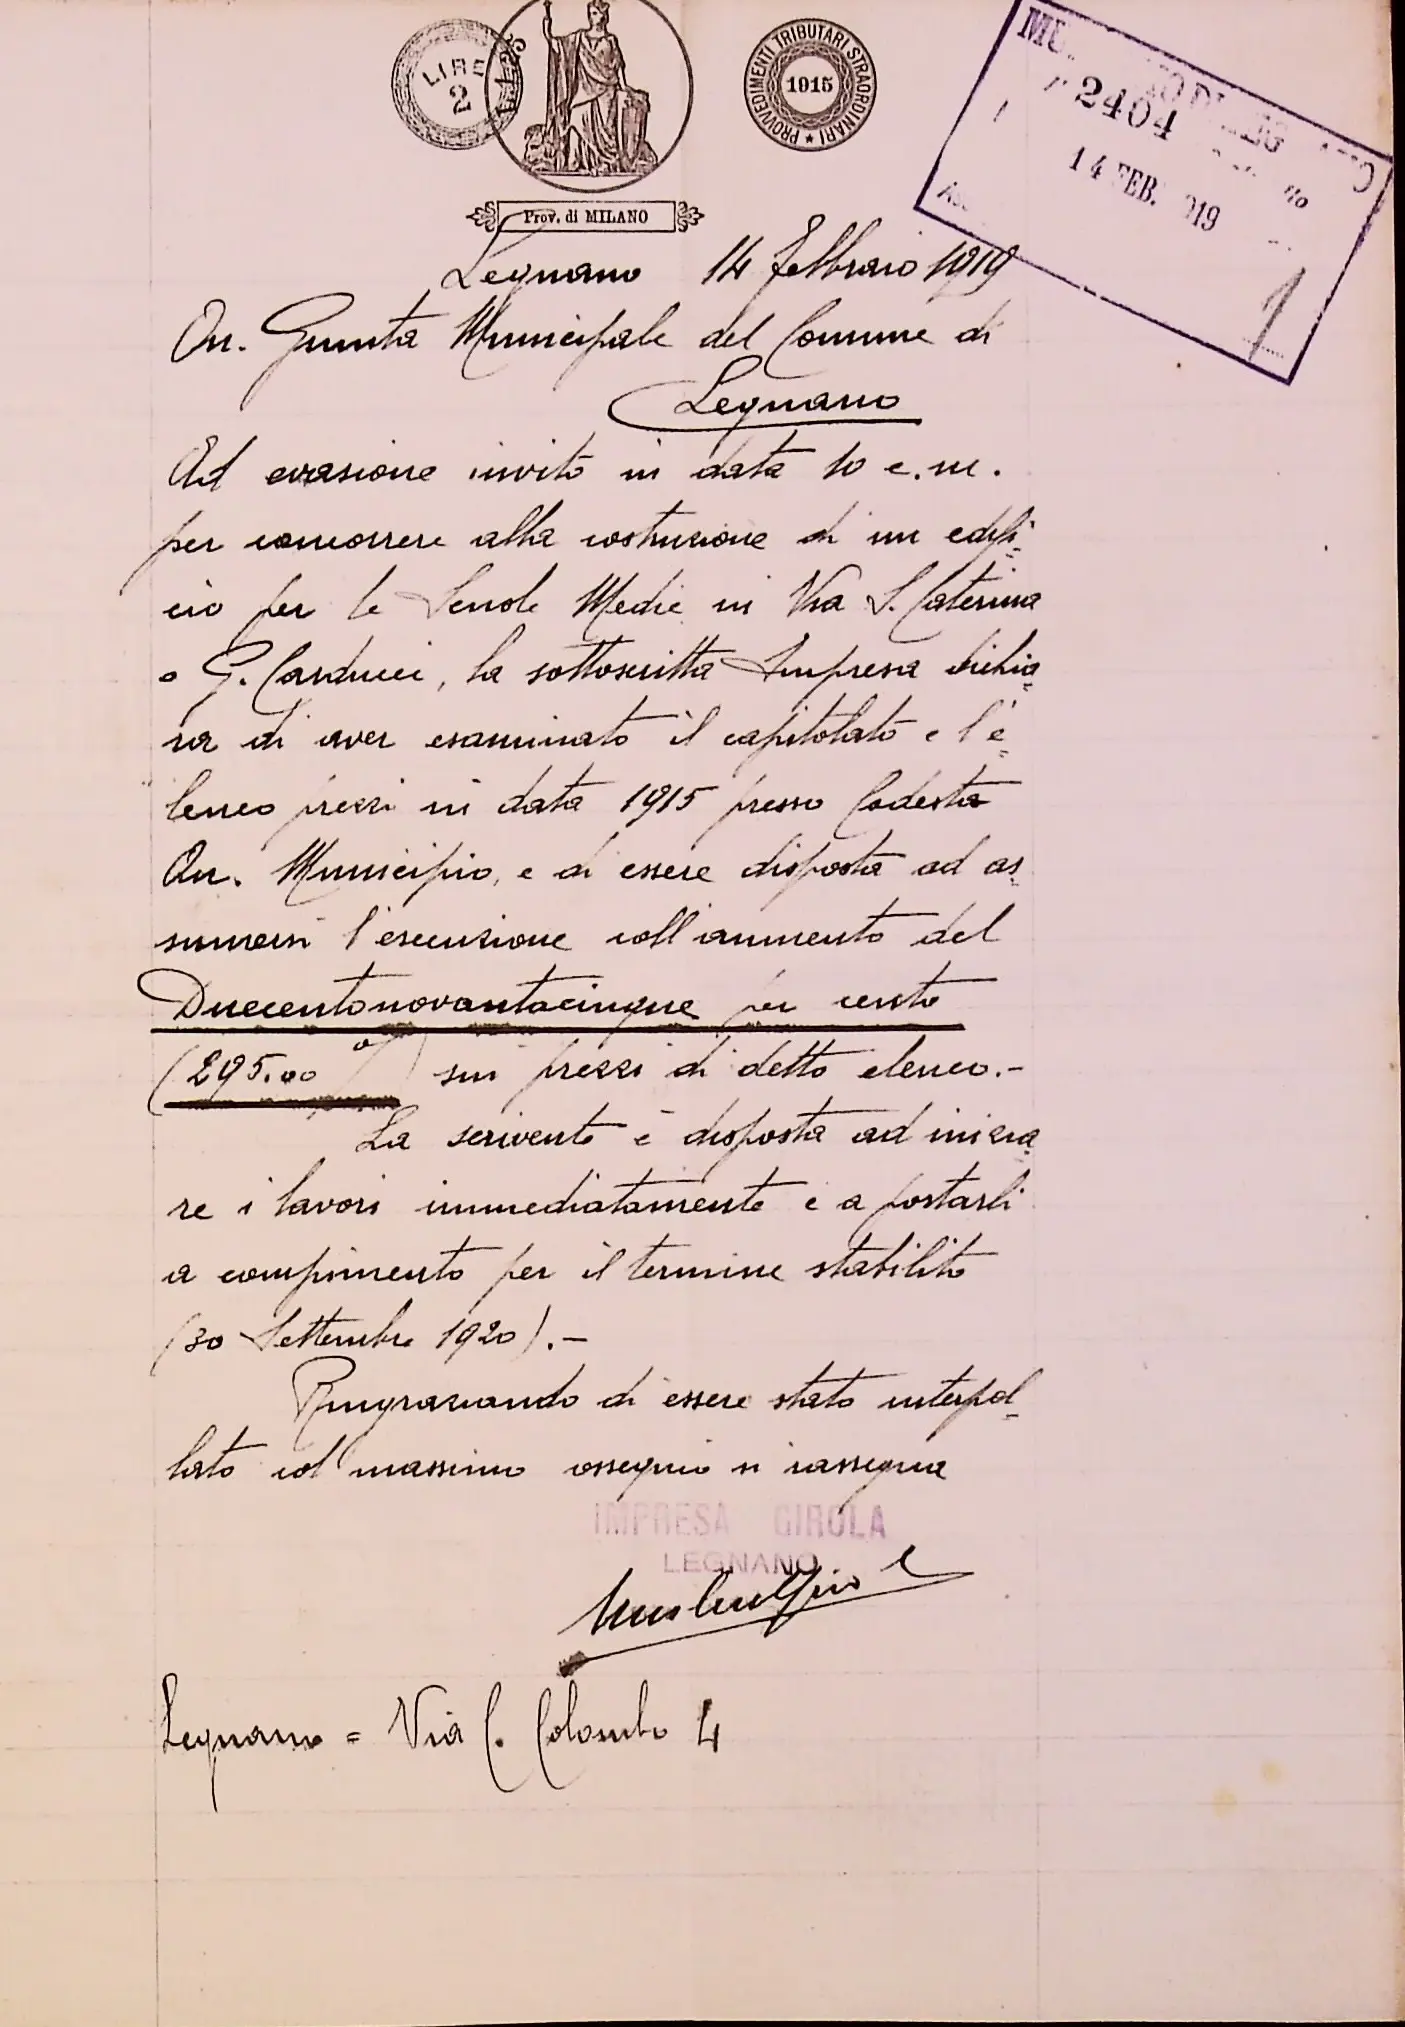 LIRE
2
PROVVEDIMENTI TRIBUTARI STRAORDINARI
1915
2404
14 FEB. 1919
1
Prov. di MILANO
Legnano 14 Febbraio 1919
On. Giunta Municipale del Comune di
Legnano
Ad evasione invito in data 10 c.m.
per concorrere alla costruzione di un edifi=
cio per le Scuole Medie in Via S. Caterina
e G. Carducci, la sottoscritta Impresa dichia=
ra di aver esaminato il capitolato e l'e=
lenco prezzi in data 1915 presso Codesto
On. Municipio, e di essere disposta ad as=
sumersi l'esecuzione coll'aumento del
Duecentonovantacinque per cento
(295.00 %) sui prezzi di detto elenco.-
La scrivente è disposta ad inizia=
re i lavori immediatamente e a portarli
a compimento per il termine stabilito
(30 Settembre 1920).-
Ringraziando di essere stato interpel=
lato col massimo ossequio si rassegna
IMPRESA GIROLA
LEGNANO
Legnano = Via C. Colombo 4